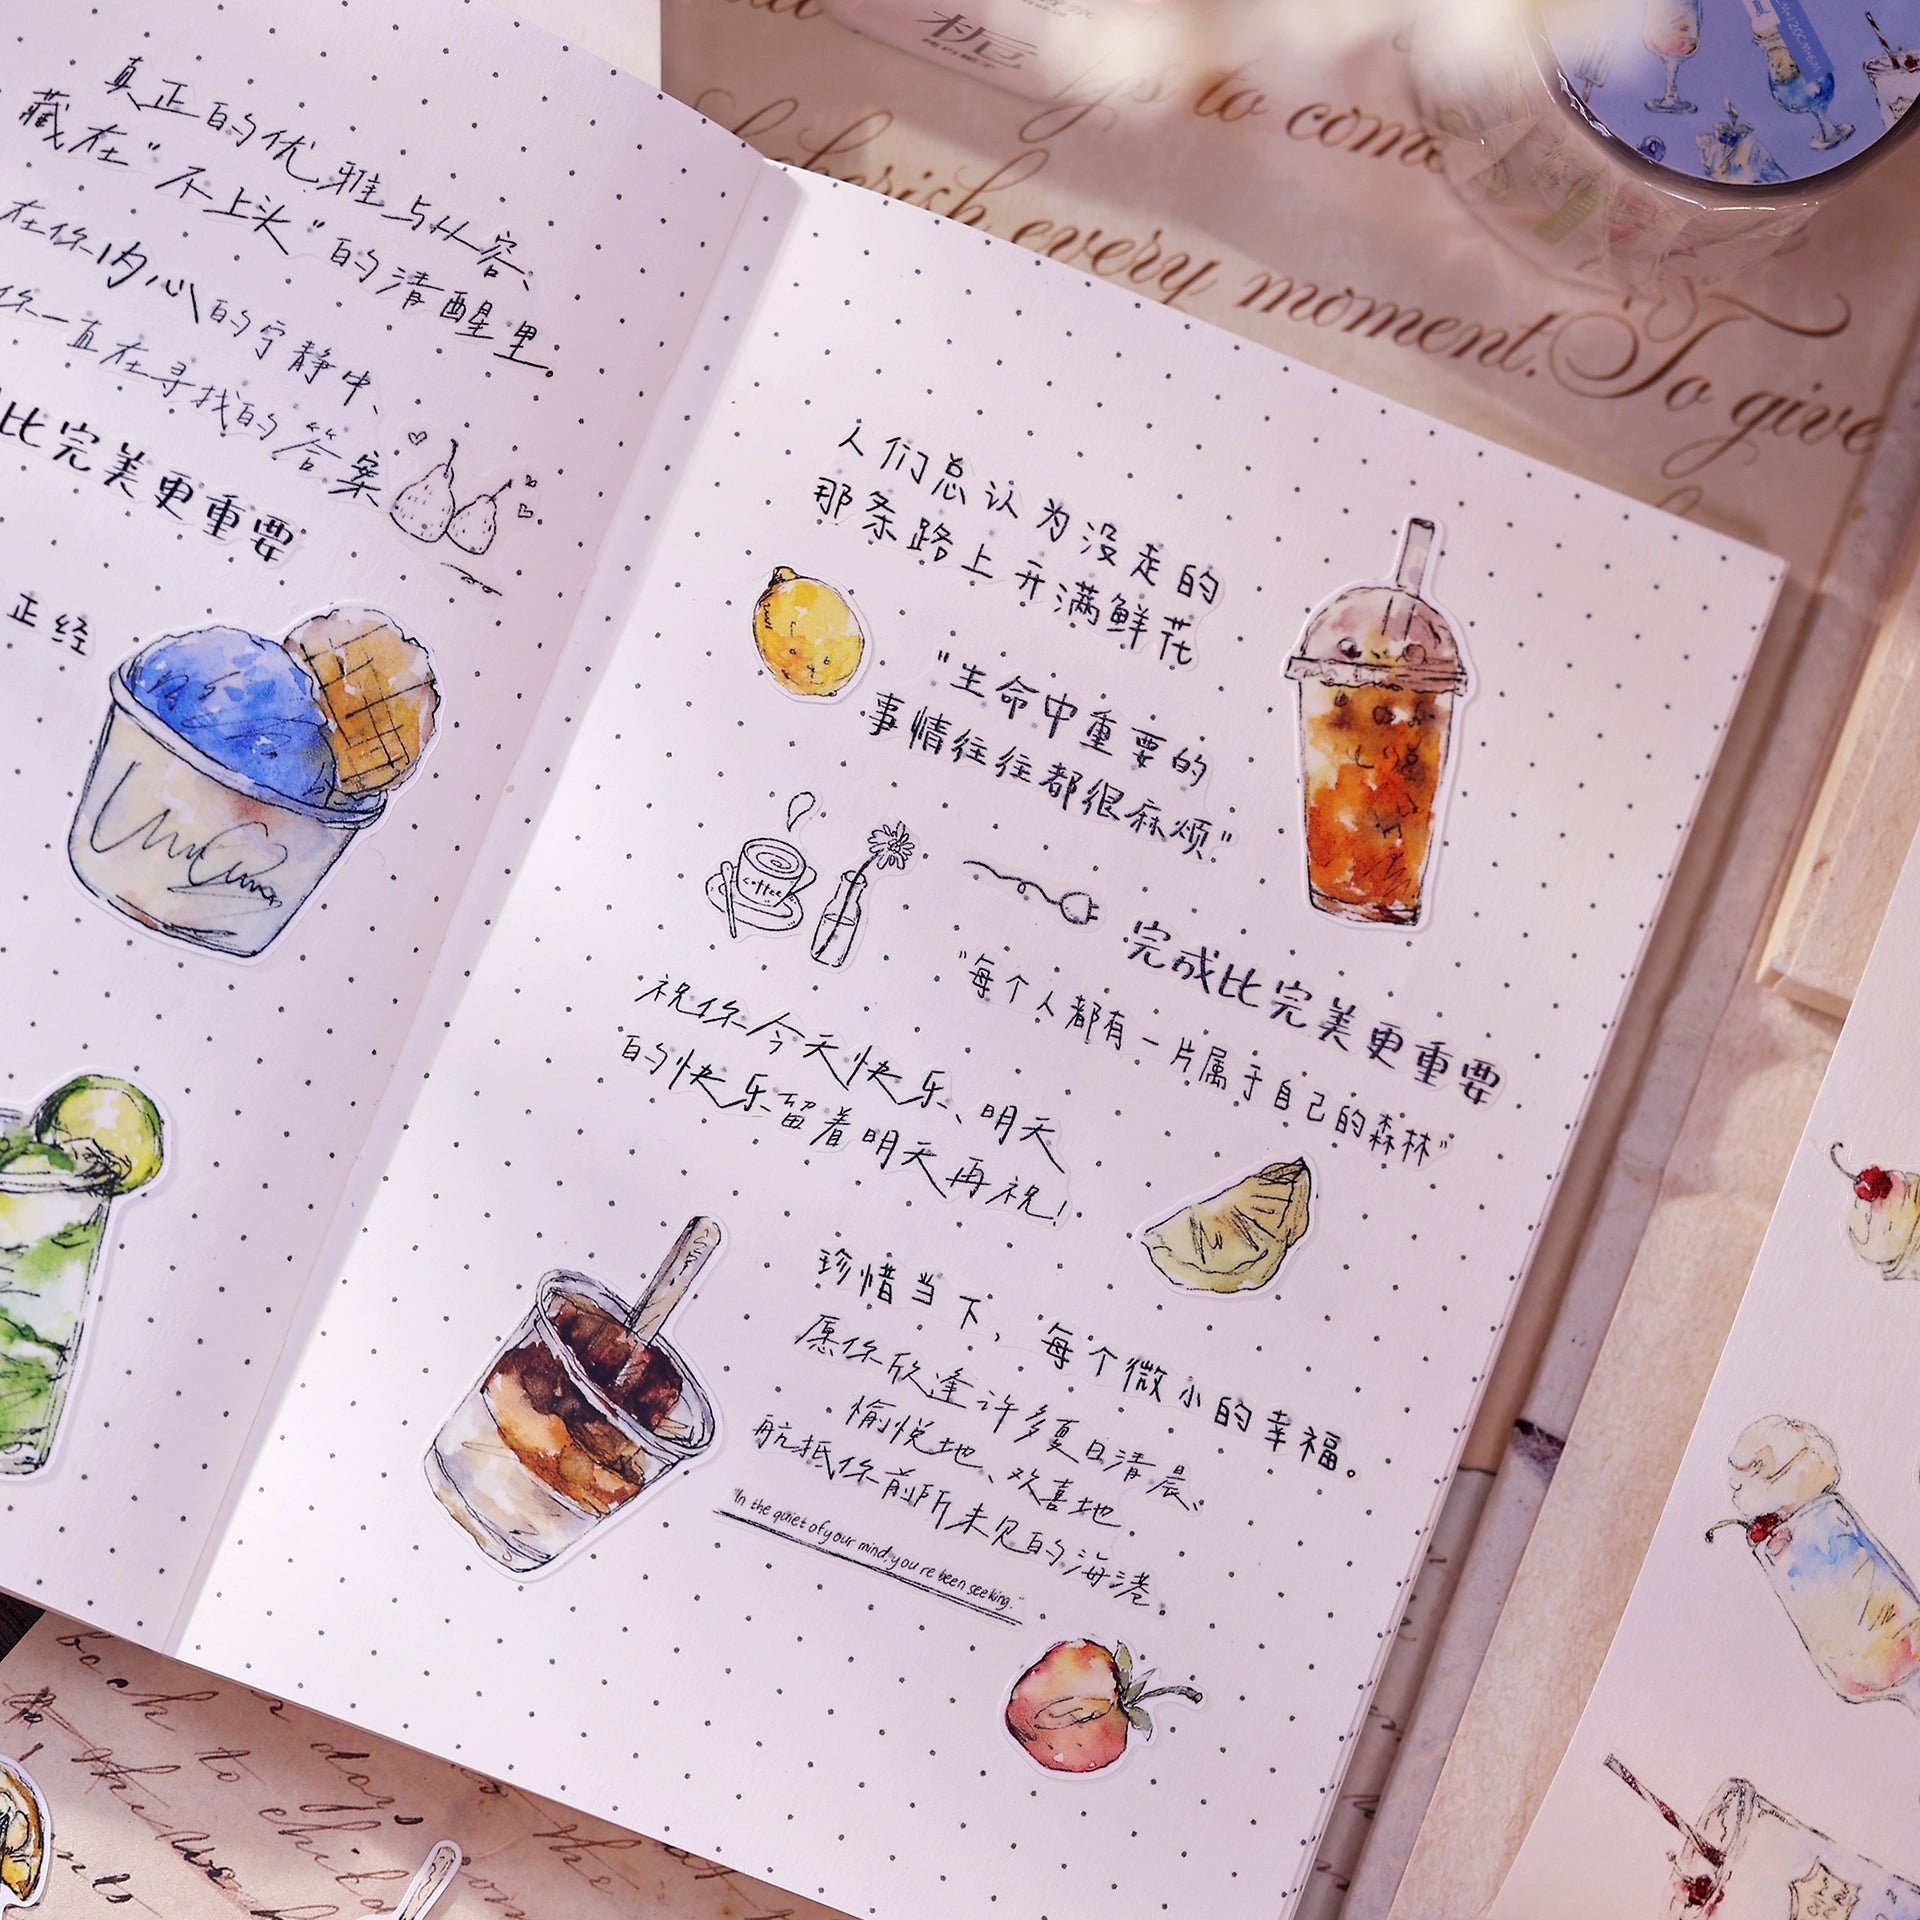 真正的优雅与从容、
藏在"不上头"的清醒里。
在你内心的宁静中、
你一直在寻找的答案
比完美更重要
正经
人们总认为没走的
那条路上开满鲜花
"生命中重要的
事情往往都很麻烦"
coffee
完成比完美更重要
"每个人都有一片属于自己的森林"
祝你今天快乐、明天
的快乐留着明天再祝!
珍惜当下，每个微小的幸福。
愿你欣逢许多夏日清晨、
愉悦地、欢喜地
航抵你前所未见的海港。
"In the quiet of your mind, you're been seeking."
to come
cherish every moment. To give